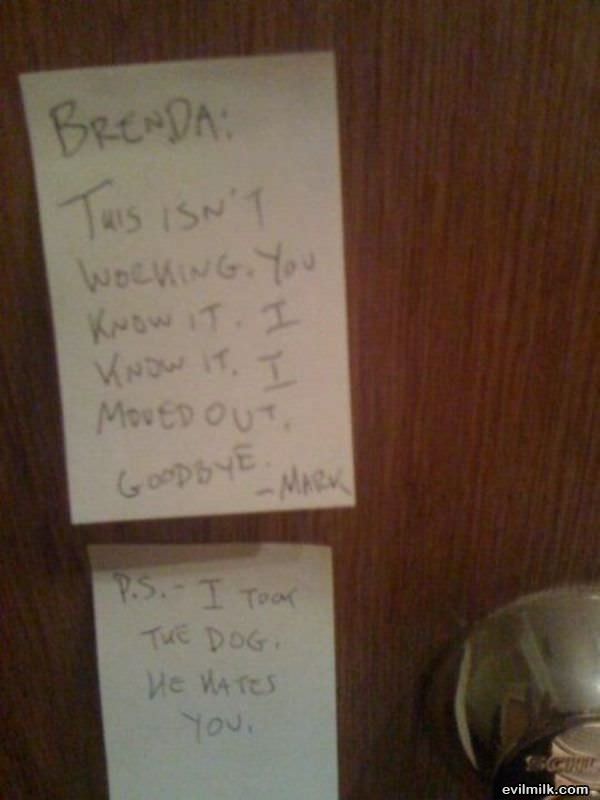 BRENDA:
THIS ISN'T
WORKING. YOU
KNOW IT. I
KNOW IT. I
MOVED OUT.
GOODBYE.
-MARK
P.S.- I TOOK
THE DOG.
HE HATES
YOU.
evilmilk.com